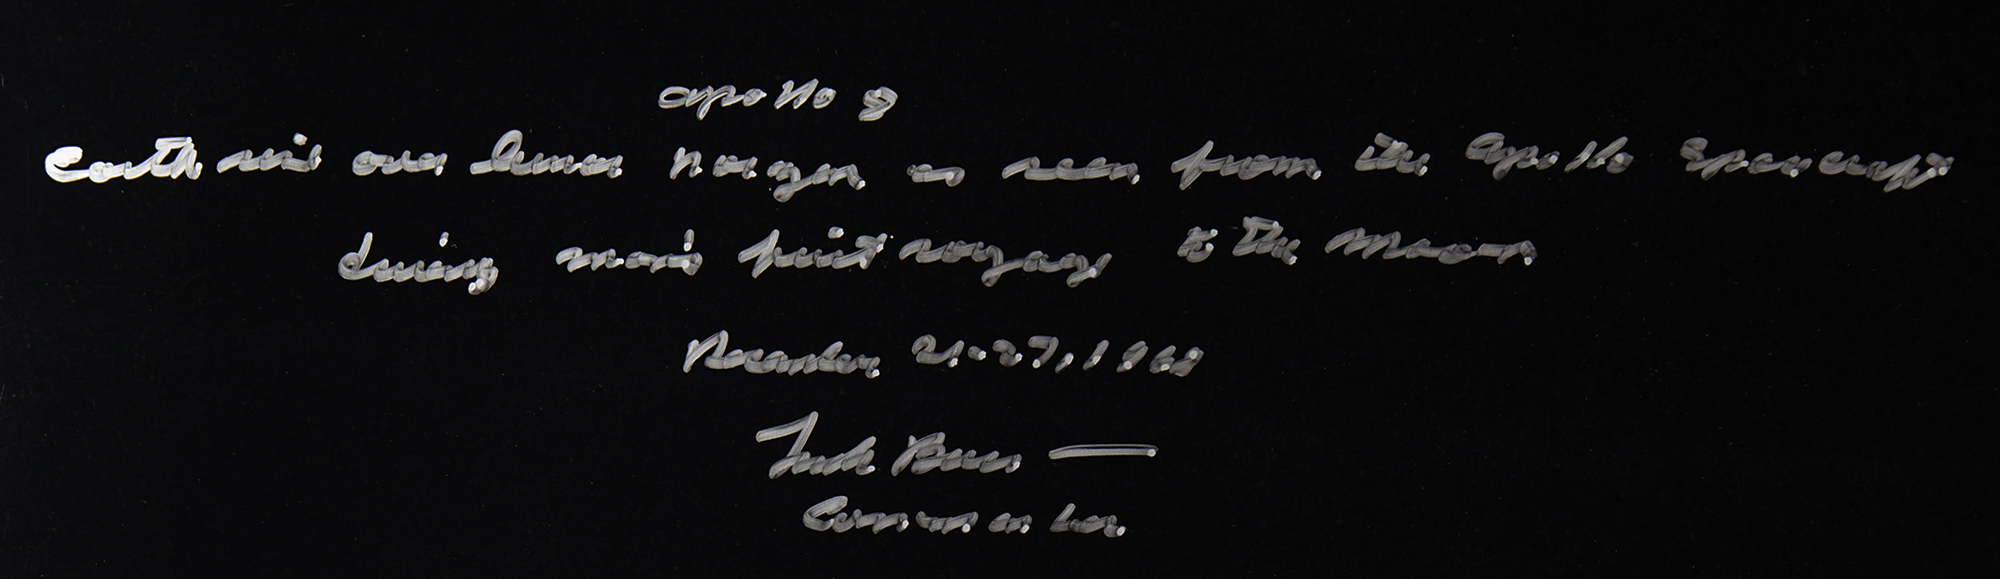 Apollo 8
Earth rise over lunar horizon as seen from the Apollo Spacecraft
during man's first voyage to the Moon
December 21-27, 1968
Frank Borman
Commander